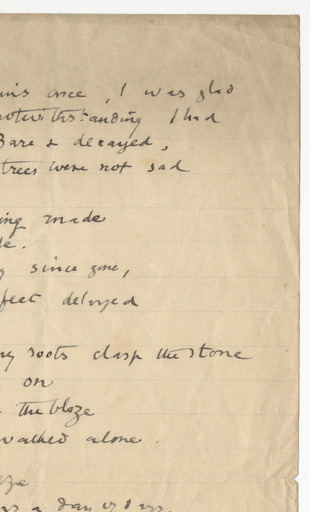 once, I was glad
notwithstanding I had
Bare & decayed,
trees were not sad
ing made
de.
since gone,
feet delayed
roots clasp the stone
on
the blaze
walked alone.
ze
as a day of days.